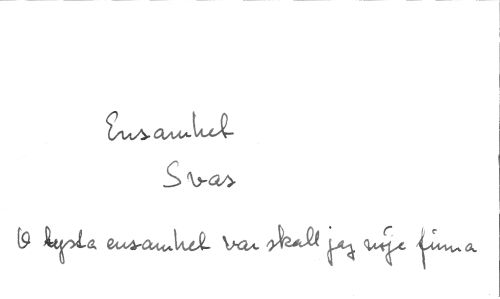 Ensamhet
Svas
O tysta ensamhet var skall jag nöje finna